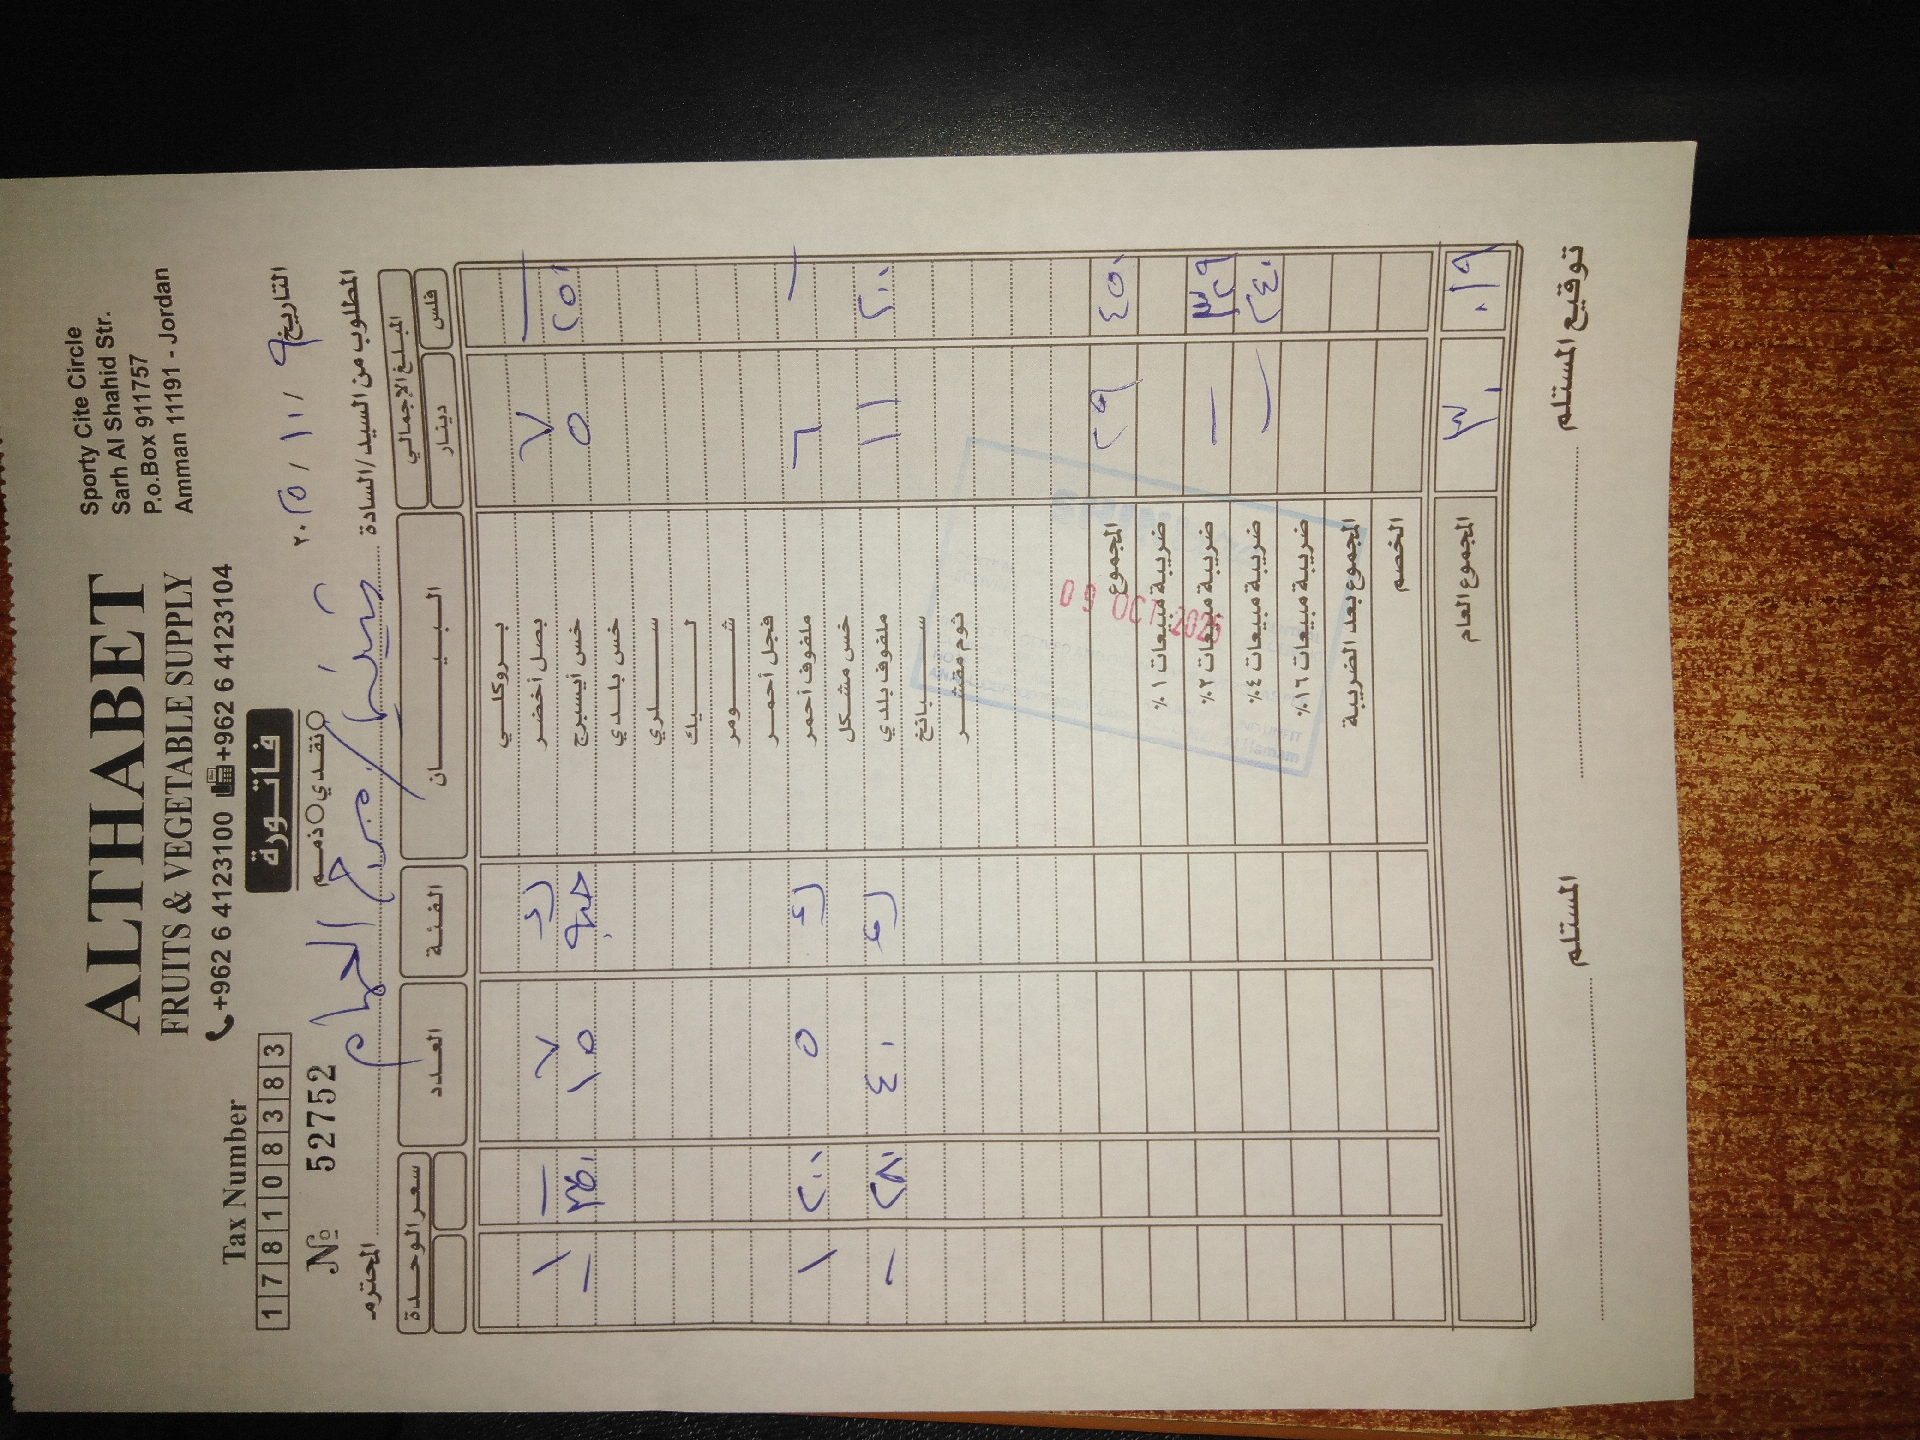 ALTHABET
FRUITS & VEGETABLE SUPPLY
+962 6 4123100 +962 6 4123104
Sporty Cite Circle
Sarh Al Shahid Str.
P.o.Box 911757
Amman 11191 - Jordan
Tax Number
1 7 8 1 0 8 3 8 3
№ 52752
فاتورة
نقدي ذمم
التاريخ ٩ / ١١ / ٢٠٢٥
المطلوب من السيد/السادة
المحترم
المبلغ الإجمالي البيـــان الفئة العدد سعر الوحدة
فلس دينار
بروكلي
— ٧ بصل أخضر ٧ — ١
٢٥٠ ٥ خس أيسبرج حبة ١٥ ٣٥٠ —
خس بلدي
سلري
ليك
شومر
فجل أحمر
— ٦ ملفوف أحمر ٥ ٢٠٠ ١
خس مشكل
٢٠٠ ١١ ملفوف بلدي ٤٠ ٢٨٠ —
سبانخ
ثوم مقشر
09 OCT 2025
٤٥٠ ٢٩ المجموع
ضريبة مبيعات ١٪
٣٢٩ — ضريبة مبيعات ٢٪
٢٤٠ — ضريبة مبيعات ٤٪
ضريبة مبيعات ١٦٪
المجموع بعد الضريبة
الخصم
٠١٩ ٣٠ المجموع العام
توقيع المستلم
المستلم